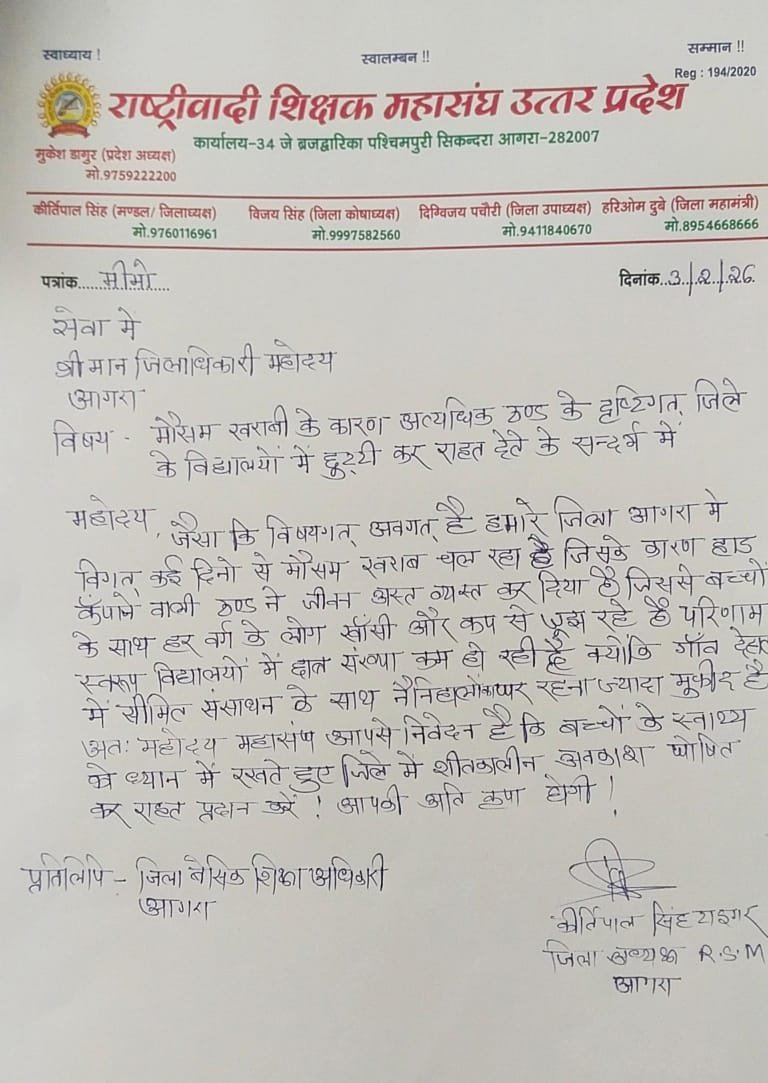 स्वाध्याय ! स्वालम्बन !! सम्मान !!
Reg : 194/2020
राष्ट्रीवादी शिक्षक महासंघ उत्तर प्रदेश
कार्यालय-34 जे ब्रजद्वारिका पश्चिमपुरी सिकन्दरा आगरा-282007
मुकेश डागुर (प्रदेश अध्यक्ष)
मो.9759222200
कीर्तिपाल सिंह (मण्डल/ जिलाध्यक्ष) विजय सिंह (जिला कोषाध्यक्ष) दिग्विजय पचौरी (जिला उपाध्यक्ष) हरिओम दुबे (जिला महामंत्री)
मो.9760116961 मो.9997582560 मो.9411840670 मो.8954668666
पत्रांक......मीमो.... दिनांक..3./.2./.26.
सेवा मे
श्री मान जिलाधिकारी महोदय
आगरा
विषय - मौसम खराबी के कारण अत्यधिक ठण्ड के दृष्टिगत् जिले
के विद्यालयों में छुट्टी कर राहत देते के सन्दर्भ में
महोदय, जैसा कि विषयगत् अवगत् है हमारे जिला आगरा मे
विगत् कई दिनो से मौसम खराब चल रहा है जिसके कारण हाड
कँपाने वाली ठण्ड ने जीवन अस्त व्यस्त कर दिया है जिससे बच्चों
के साथ हर वर्ग के लोग खाँसी और कप से जूझ रहे है परिणाम
स्वरूप विद्यालयों में छात्र संख्या कम हो रही है क्योकि गाँव देहात
में सीमित संसाधन के साथ नैनिहालों घर रहना ज्यादा मुफीद है
अतः महोदय महासंघ आपसे निवेदन है कि बच्चों के स्वाथ्य
को ध्यान में रखते हुए जिले मे शीतकालीन अवकाश घोषित
कर राहत प्रदान करें ! आपकी अति कृपा होगी !
प्रतिलिपि - जिला बेसिक शिक्षा अधिकारी
आगरा
कीर्तिपाल सिंह
जिला अध्यक्ष R.S.M
आगरा